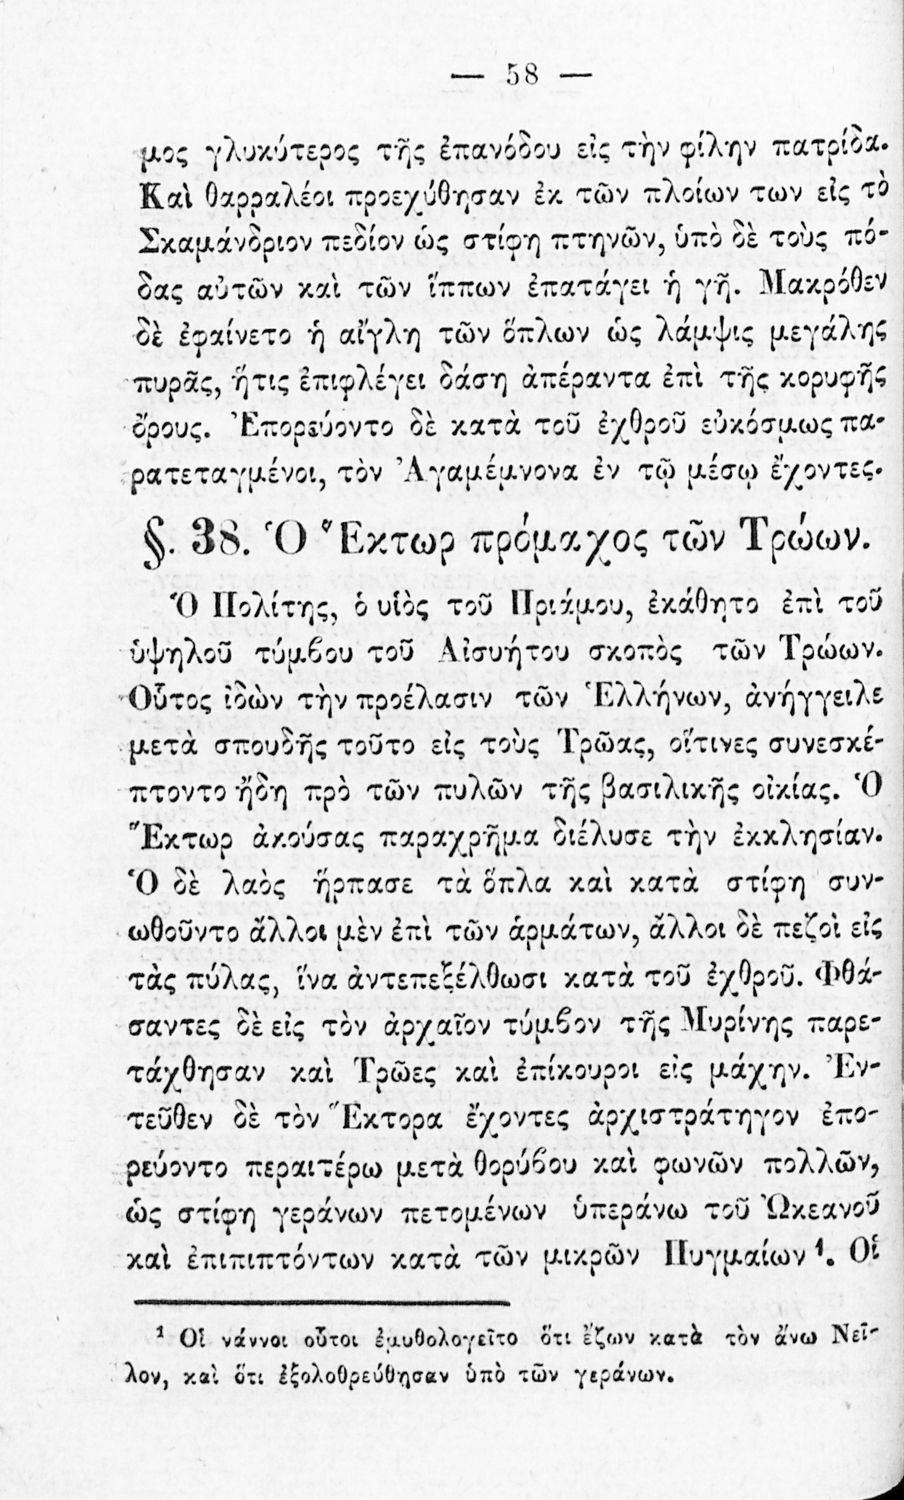 — 58 —
μος γλυκύτερος τῆς ἐπανόδου εἰς τὴν φίλην πατρίδα.
Καὶ θαρραλέοι προεχύθησαν ἐκ τῶν πλοίων των εἰς τὸ
Σκαμάνδριον πεδίον ὡς στίφη πτηνῶν, ὑπὸ δὲ τοὺς πό-
δας αὐτῶν καὶ τῶν ἵππων ἐπατάγει ἡ γῆ. Μακρόθεν
δὲ ἐφαίνετο ἡ αἴγλη τῶν ὅπλων ὡς λάμψις μεγάλης
πυρᾶς, ἥτις ἐπιφλέγει δάση ἀπέραντα ἐπὶ τῆς κορυφῆς
ὄρους. Ἐπορεύοντο δὲ κατὰ τοῦ ἐχθροῦ εὐκόσμως πα-
ρατεταγμένοι, τὸν Ἀγαμέμνονα ἐν τῷ μέσῳ ἔχοντες.
§. 38. Ὁ Ἕκτωρ πρόμαχος τῶν Τρώων.
Ὁ Πολίτης, ὁ υἱὸς τοῦ Πριάμου, ἐκάθητο ἐπὶ τοῦ
ὑψηλοῦ τύμβου τοῦ Αἰσυήτου σκοπὸς τῶν Τρώων.
Οὗτος ἰδὼν τὴν προέλασιν τῶν Ἑλλήνων, ἀνήγγειλε
μετὰ σπουδῆς τοῦτο εἰς τοὺς Τρῶας, οἵτινες συνεσκέ-
πτοντο ἤδη πρὸ τῶν πυλῶν τῆς βασιλικῆς οἰκίας. Ὁ
Ἕκτωρ ἀκούσας παραχρῆμα διέλυσε τὴν ἐκκλησίαν.
Ὁ δὲ λαὸς ἥρπασε τὰ ὅπλα καὶ κατὰ στίφη συν-
ωθοῦντο ἄλλοι μὲν ἐπὶ τῶν ἁρμάτων, ἄλλοι δὲ πεζοὶ εἰς
τὰς πύλας, ἵνα ἀντεπεξέλθωσι κατὰ τοῦ ἐχθροῦ. Φθά-
σαντες δὲ εἰς τὸν ἀρχαῖον τύμβον τῆς Μυρίνης παρε-
τάχθησαν καὶ Τρῶες καὶ ἐπίκουροι εἰς μάχην. Ἐν-
τεῦθεν δὲ τὸν Ἕκτορα ἔχοντες ἀρχιστράτηγον ἐπο-
ρεύοντο περαιτέρω μετὰ θορύβου καὶ φωνῶν πολλῶν,
ὡς στίφη γεράνων πετομένων ὑπεράνω τοῦ Ὠκεανοῦ
καὶ ἐπιπιπτόντων κατὰ τῶν μικρῶν Πυγμαίων ¹. Οἱ
¹ Οἱ νάννοι οὗτοι ἐμυθολογεῖτο ὅτι ἔζων κατὰ τὸν ἄνω Νεῖ-
λον, καὶ ὅτι ἐξολοθρεύθησαν ὑπὸ τῶν γεράνων.